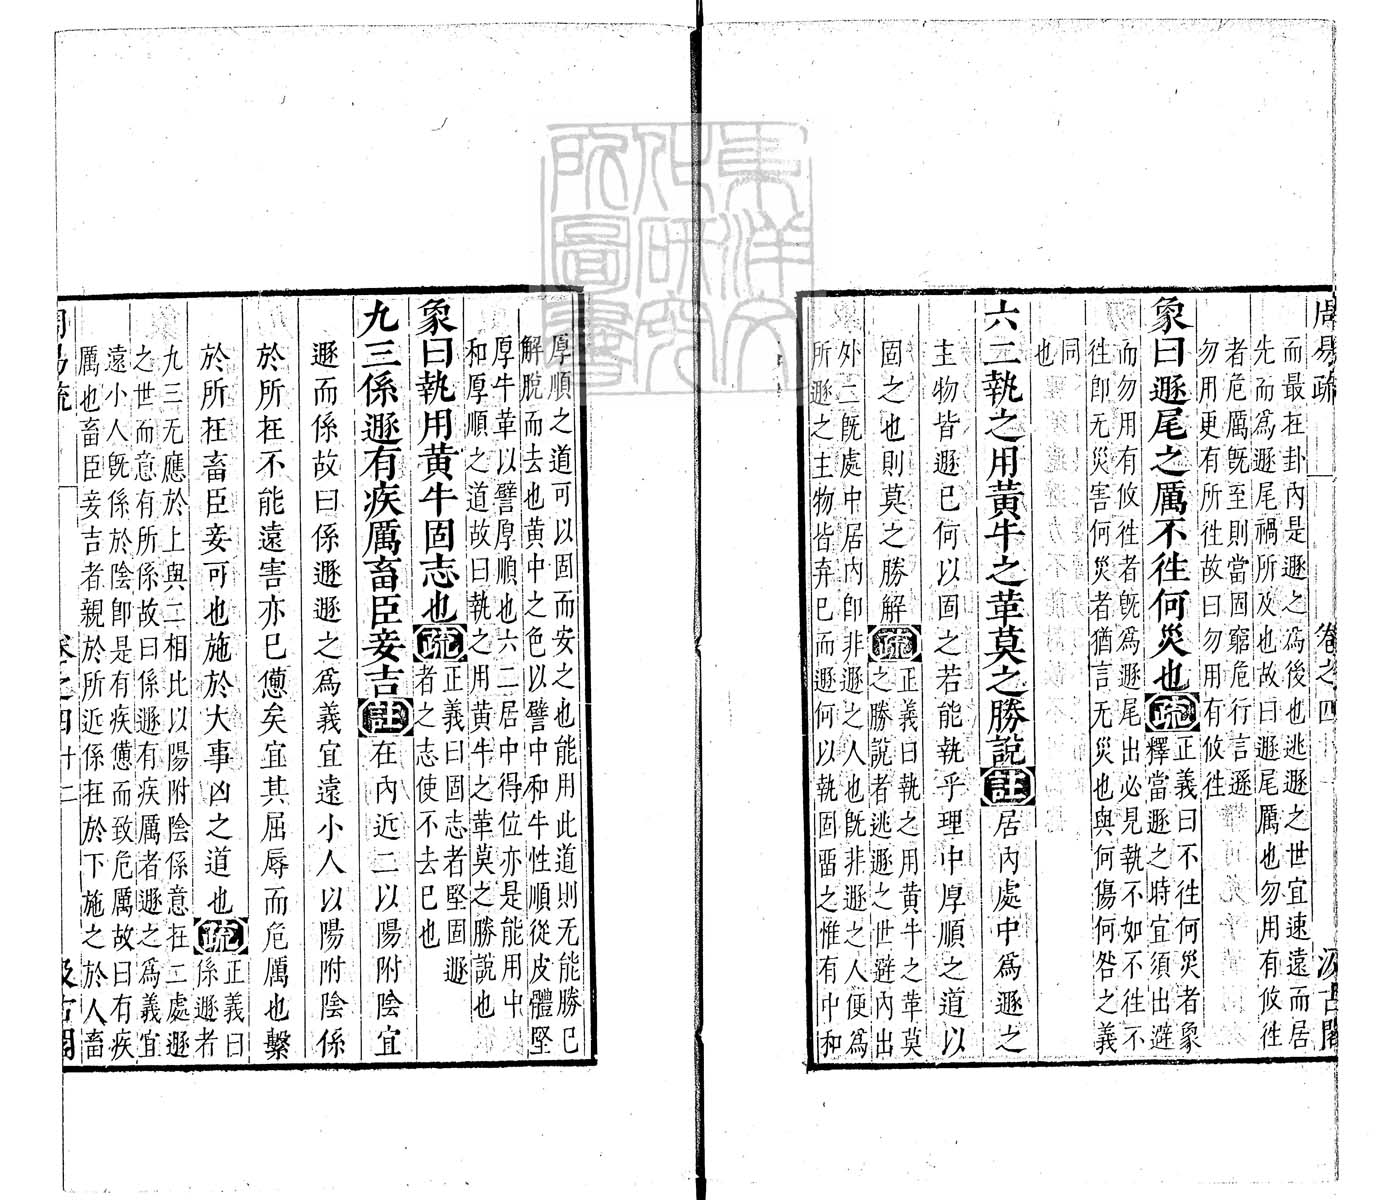 周易疏 卷之四 十一 汲古閣
而最在卦內是遯之爲後也逃遯之世宜速遠而居
先而爲遯尾禍所及也故曰遯尾厲也勿用有攸往
者危厲旣至則當固窮危行言遜
勿用更有所往故曰勿用有攸往
象曰遯尾之厲不往何災也疏
正義曰不往何災者象
釋當遯之時宜須出避
而勿用有攸往者旣爲遯尾出必見執不如不往不
往卽无災害何災者猶言无災也與何傷何咎之義
同
也
六二執之用黃牛之革莫之勝說註居內處中爲遯之
主物皆遯已何以固之若能執乎理中厚順之道以
固之也則莫之勝解疏
正義曰執之用黃牛之革莫
之勝說者逃遯之世避內出
外二旣處中居內卽非遯之人也旣非遯之人便爲
所遯之主物皆弃已而遯何以執固畱之惟有中和
厚順之道可以固而安之也能用此道則无能勝已
解脫而去也黃中之色以譬中和牛性順從皮體堅
厚牛革以譬厚順也六二居中得位亦是能用中
和厚順之道故曰執之用黃牛之革莫之勝說也
象曰執用黃牛固志也疏
正義曰固志者堅固遯
者之志使不去已也
九三係遯有疾厲畜臣妾吉註在內近二以陽附陰宜
遯而係故曰係遯遯之爲義宜遠小人以陽附陰係
於所在不能遠害亦已憊矣宜其屈辱而危厲也繫
於所在畜臣妾可也施於大事凶之道也疏
正義曰
係遯者
九三无應於上與二相比以陽附陰係意在二處遯
之世而意有所係故曰係遯有疾厲者遯之爲義宜
遠小人旣係於陰卽是有疾憊而致危厲故曰有疾
厲也畜臣妾吉者親於所近係在於下施之於人畜
周易疏 卷之四 十二 汲古閣